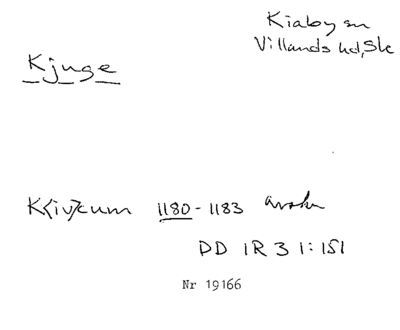 Kiaby sn
Villands hd, Sk
Kjuge
K<iv>cum 1180-1183 avskr
DD 1R 3 1:151
Nr 19166